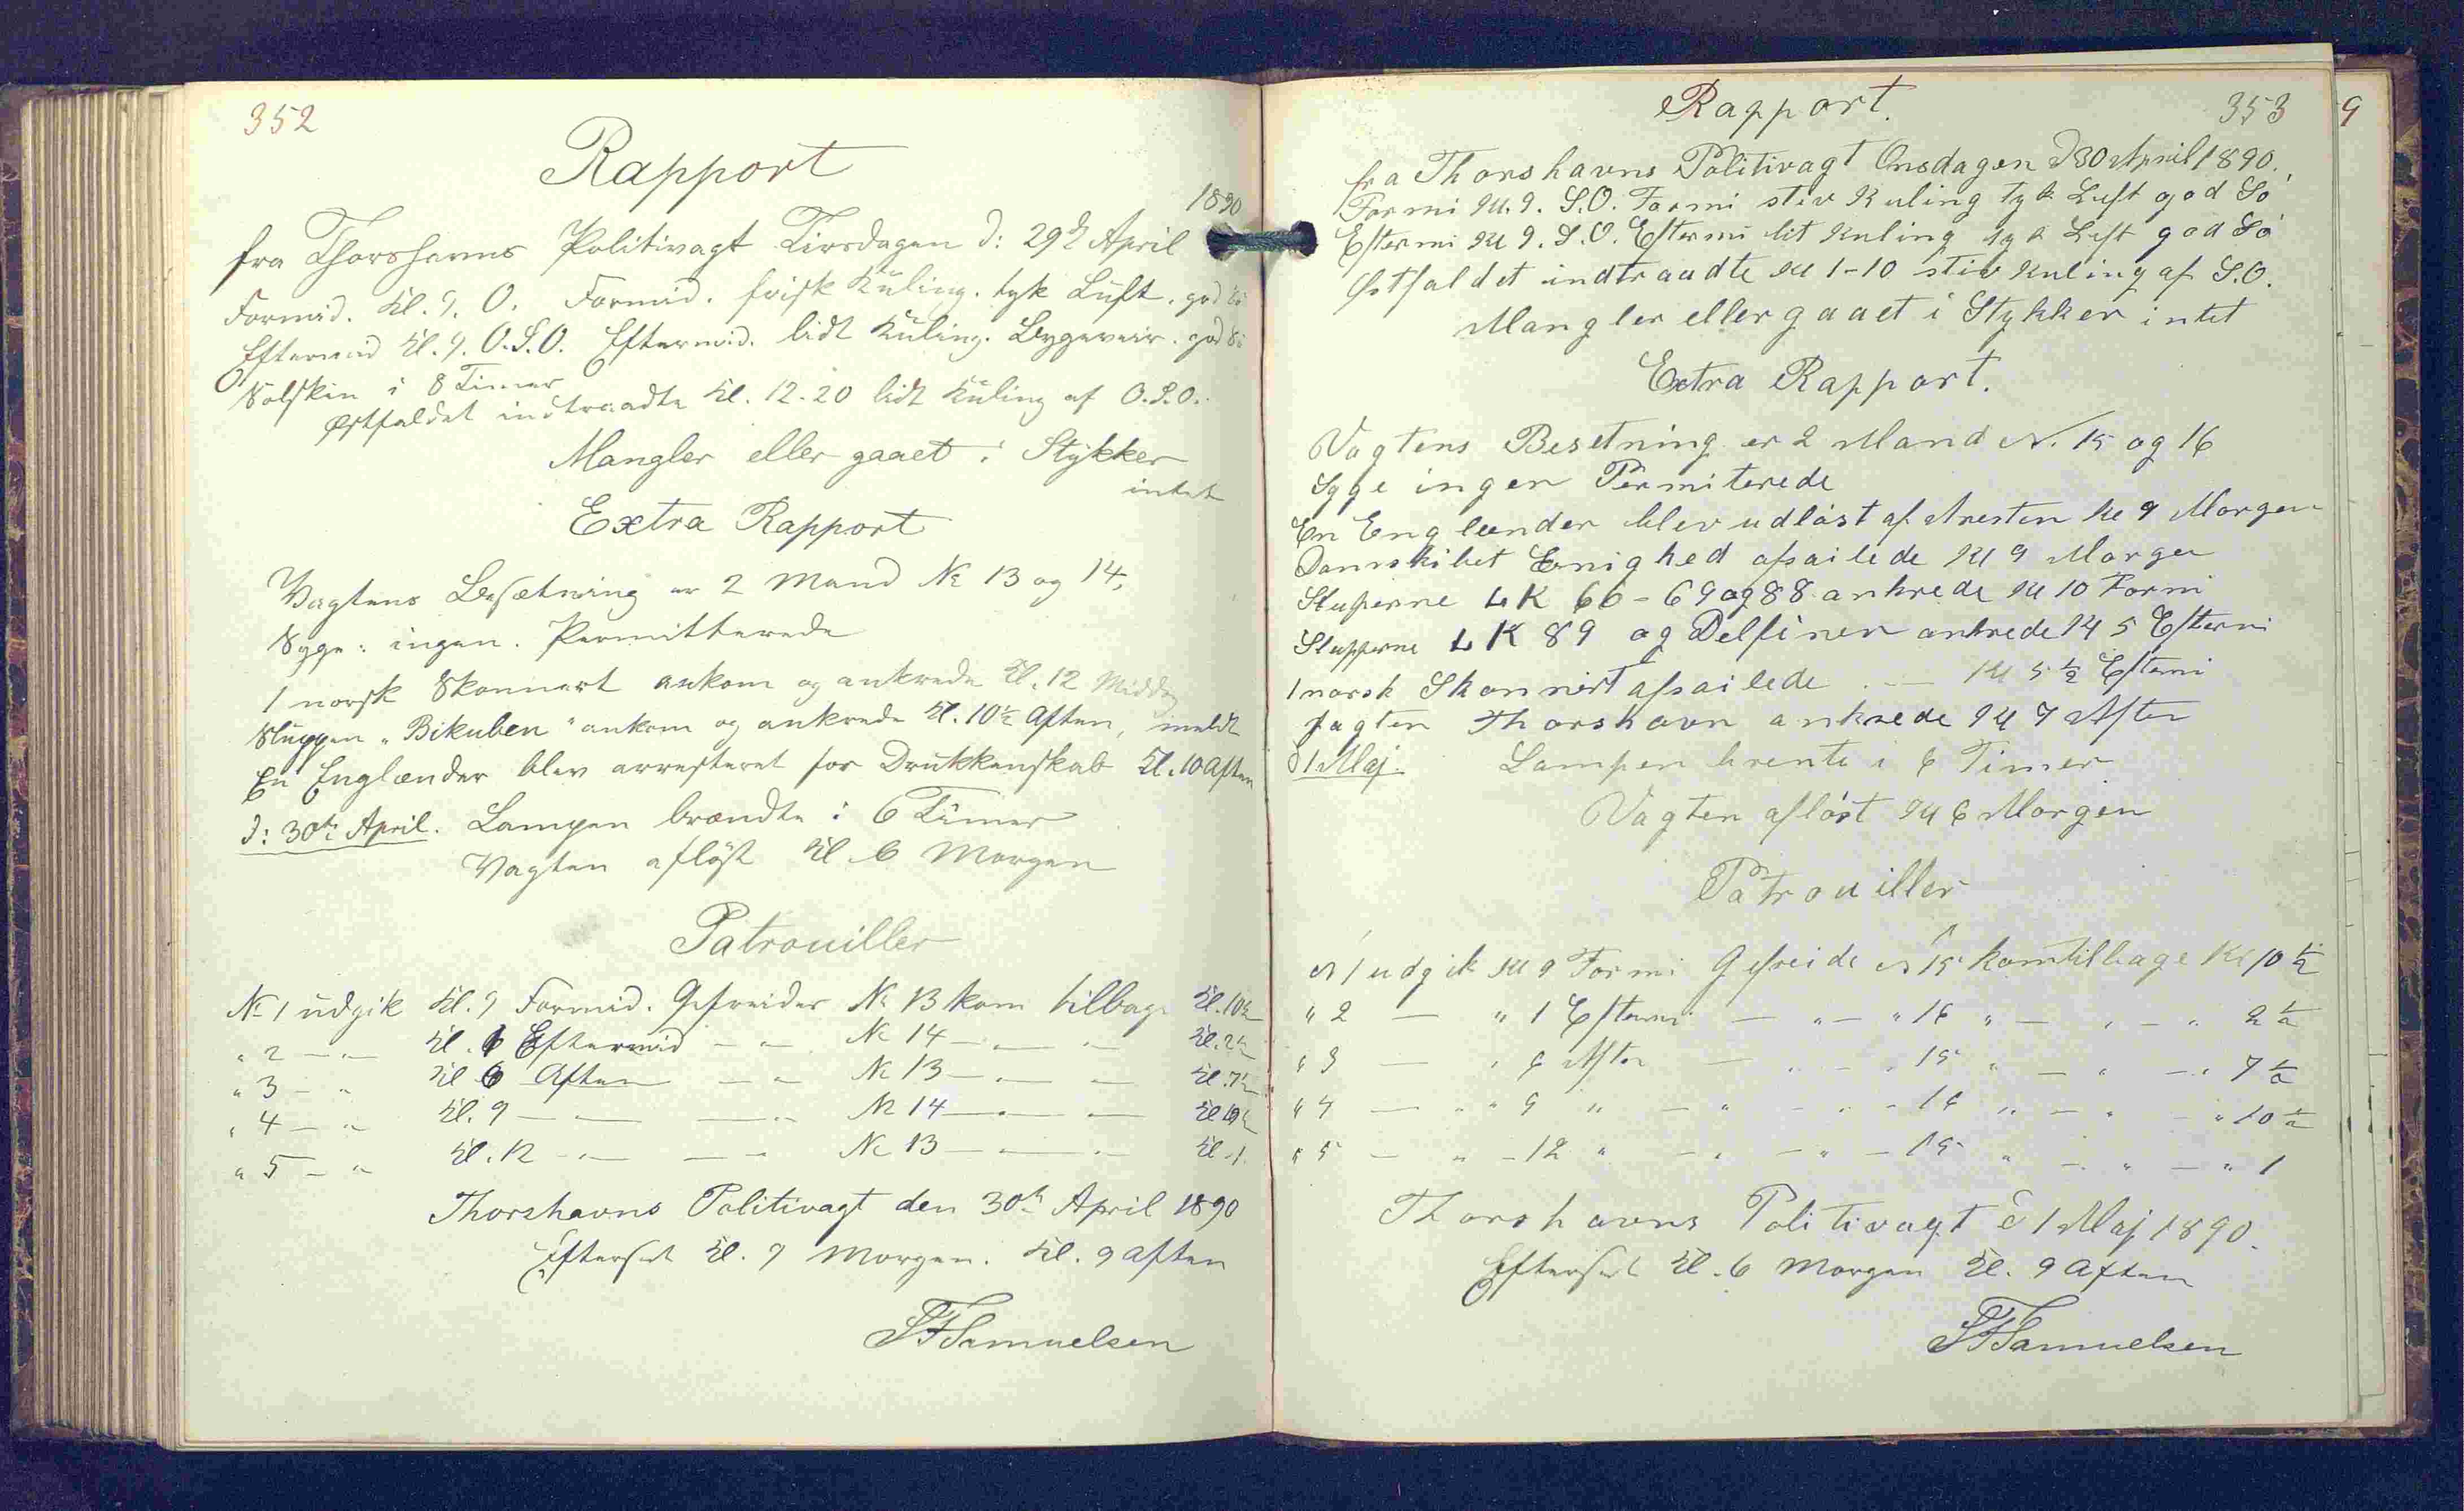 352
Rapport
1890
fra Thorshavns Politivagt Tirsdagen d: 29de April
Formid. Kl. 9. O. Formid. frisk Kuling. tyk Luft. god Sö
Eftermid Kl. 9. O.S.O. Eftermid. lidt Kuling. Bygeveir. god Sö
Solskin i 8 Timer
Østfaldet indtraadte Kl. 12.20 lidt Kuling af O.S.O.
Mangler eller gaaet i Stykker
intet
Extra Rapport
Vagtens Besætning er 2 Mand No 13 og 14,
Syge: ingen. Permitterede
1 norsk Skonnert ankom og ankrede Kl. 12 Midd
Sluppen "Bikuben" ankom og ankrede Kl. 10½ Aften, meldt
En Englænder blev arresteret for Drukkenskab Kl. 10 Aften
d: 30te April. Lampen brændte i 6 Timer
Vagten aflöst Kl 6 Morgen
Patrouiller
No 1 udgik Kl. 9 Formid. Gefreider No 13 kom tilbage Kl. 10½
" 2 — " — Kl. 1 Eftermid — " — No 14 — " — Kl. 2½
" 3 — " Kl 6 Aften — " — No 13 — " — Kl. 7½
" 4 — " Kl. 9 — " — — " No 14 — " — Kl 10½
" 5 — " Kl. 12 — " — — " No 13 — " — Kl. 1.
Thorshavns Politivagt den 30te April 1890
Efterset Kl. 9 Morgen. Kl. 9 Aften
SFSamuelsen
Rapport. 353
fra Thorshavns Politivagt Onsdagen d 30 April 1890.
Formi Kl. 9. S.O. Formi stiv Kuling tyk Luft god Sö
Eftermi Kl 9. S.O. Eftermi lit Kuling tyk Luft god Sö
Østfaldet indtraadte Kl 1-10 stiv Kuling af S.O.
Mangler eller gaaet i Stykker intet
Extra Rapport.
Vagtens Besetning er 2 Mand N. 15 og 16
Syge ingen Permiterede
En Englænder blev udlöst af Aresten Kl 9 Morgen
Damskibet Enighed afsailede Kl 9 Morgen
Sluperne LK 66 - 69 og 88 ankrede Kl 10 Formi
Slupperne LK 89 og Delfinen ankrede Kl 5 Eftermi
1 norsk Skonnert afsailede — Kl 5½ Eftemi
Jagten Thorshavn ankrede Kl 7 Aften
d 1 Maj. Lampen brente i 6 Timer
Vagten aflöst Kl 6 Morgen
Patrouiller
N 1 udgik Kl 9 Formi Gefreide N 15 kom tilbage Kl 10½
" 2 — " 1 Eftermi — " — " 16 " — " — " 2½
" 3 — " 6 Aften — " — " 15 " — " — " 7½
" 4 — " " 9 " — " — " — 16 " — " — " 10½
" 5 — " — 12 " — " — " — 15 " — " — " 1
Thorshavns Politivagt d 1 Maj 1890.
Efterset Kl. 6 Morgen Kl. 9 Aften
SFSamuelsen
9